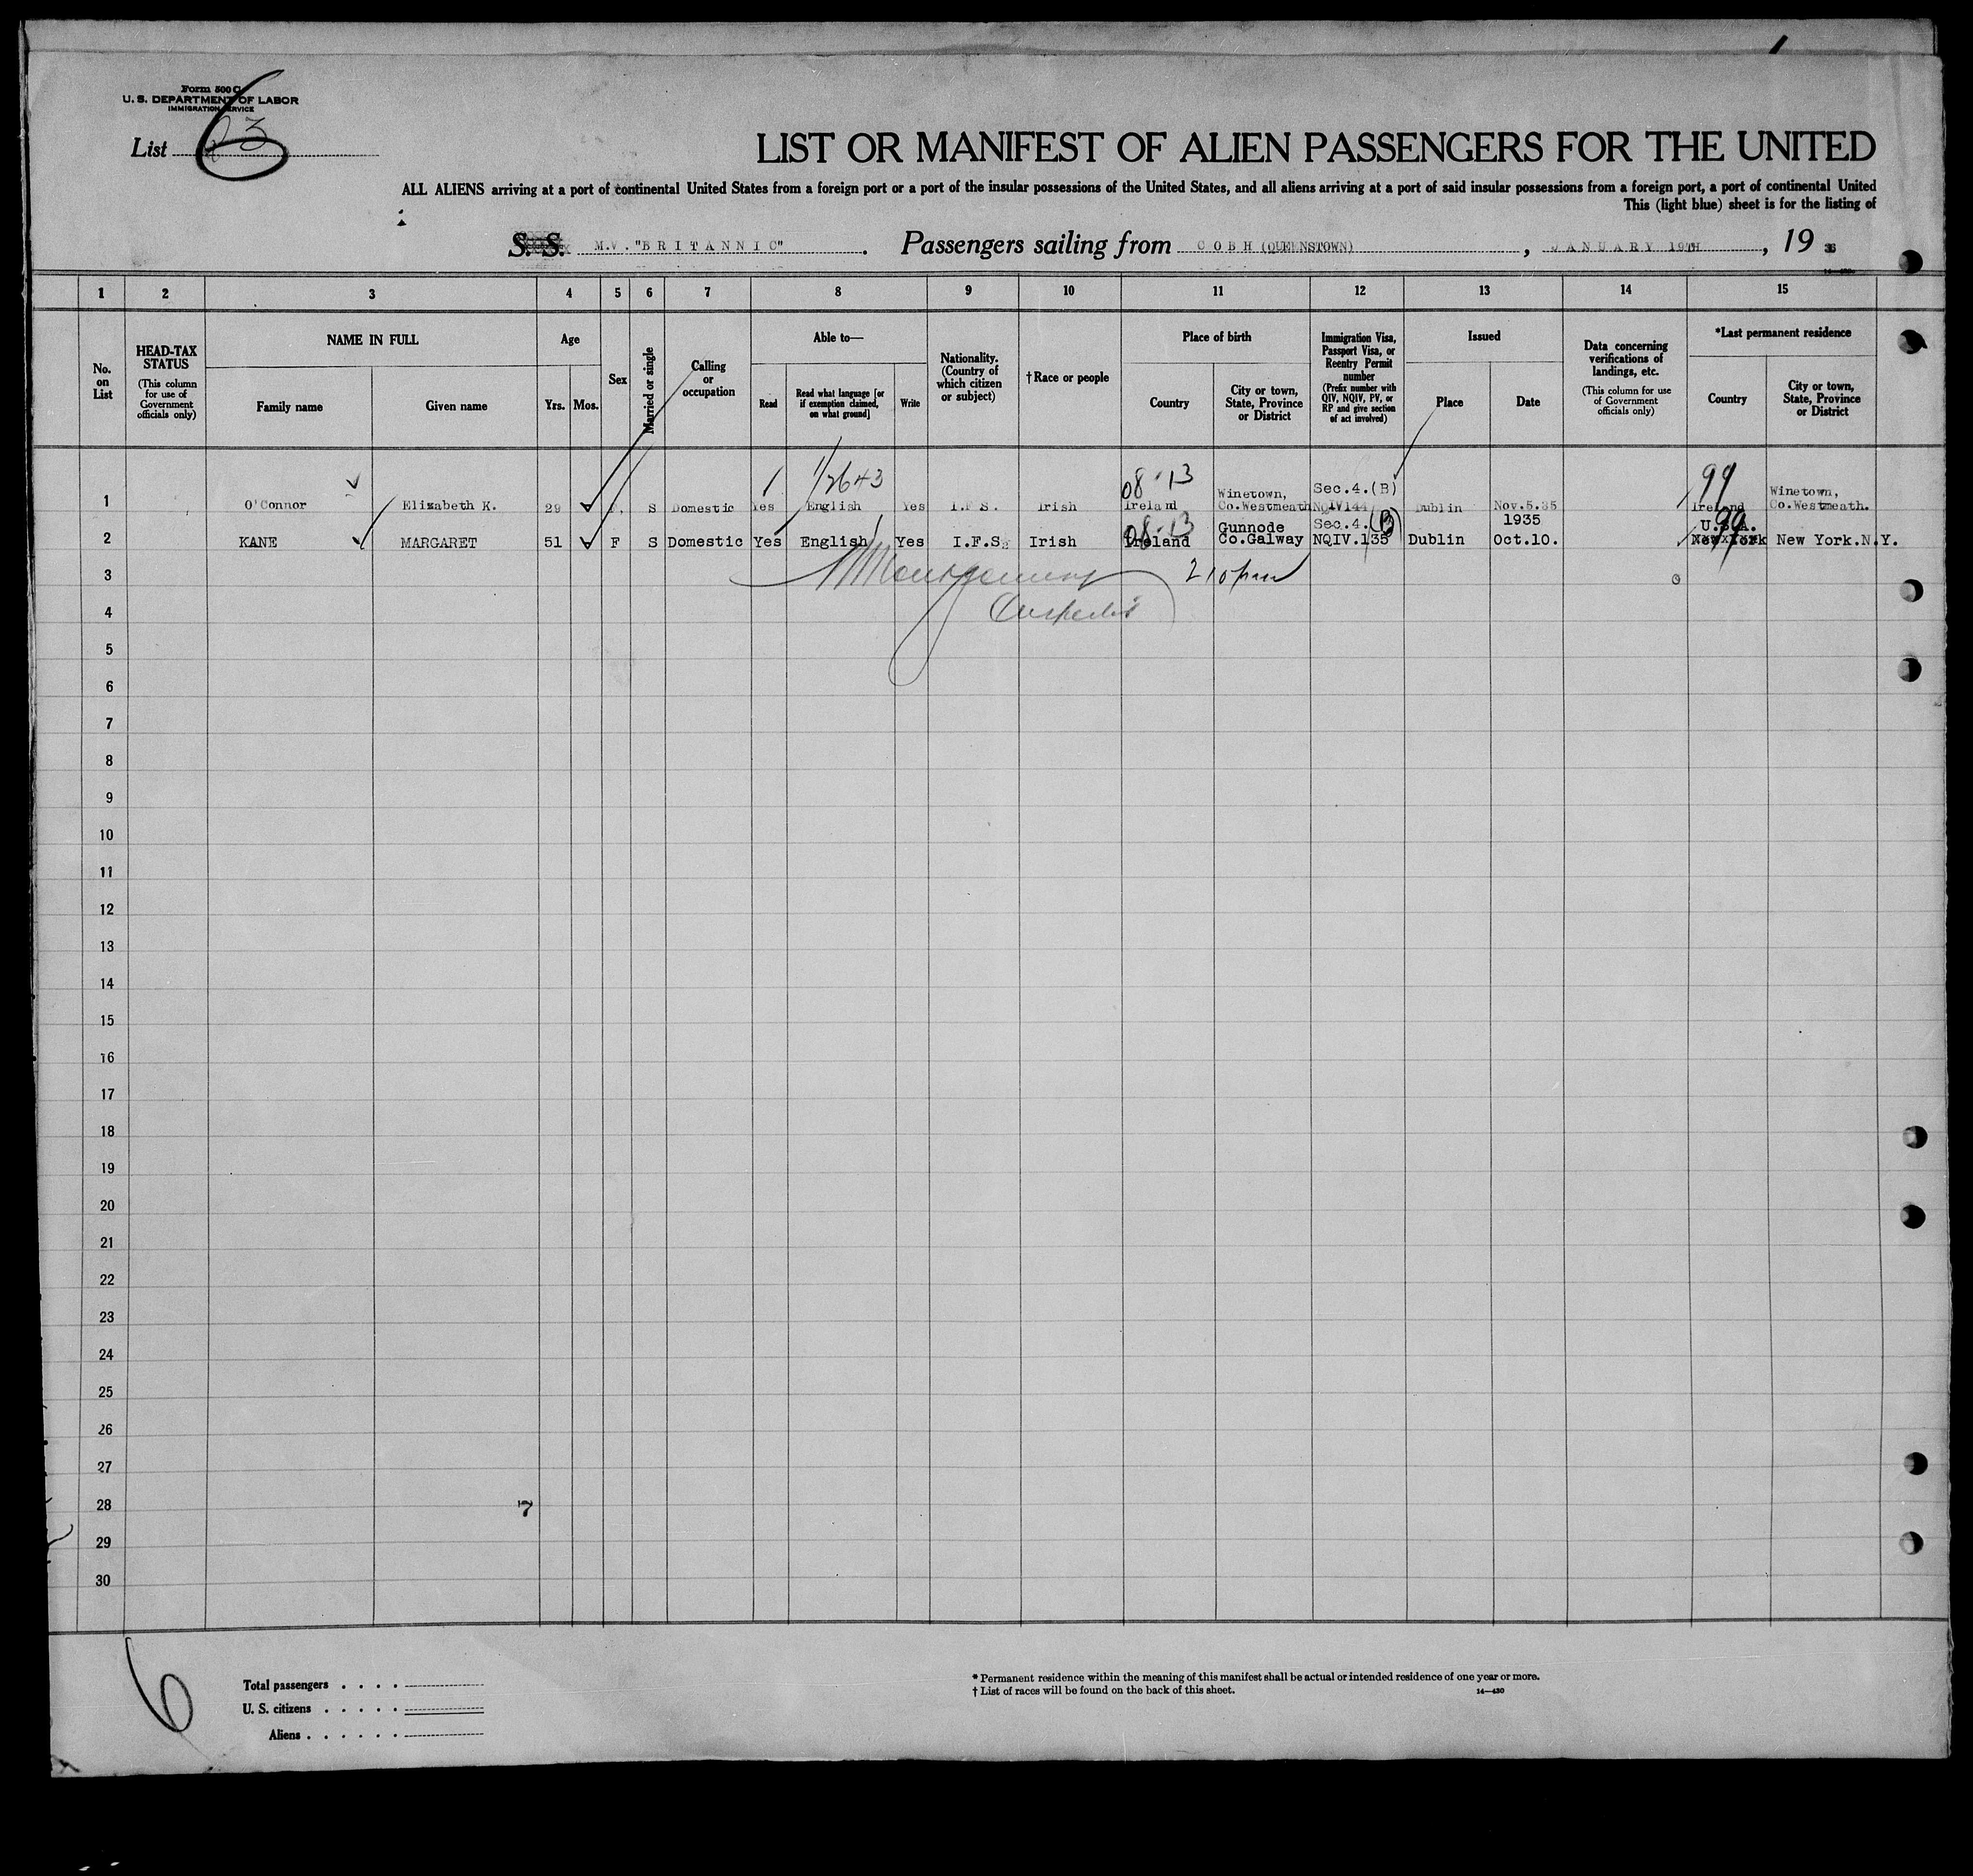 Form 500 C
U. S. DEPARTMENT OF LABOR
IMMIGRATION SERVICE
List 6
LIST OR MANIFEST OF ALIEN PASSENGERS FOR THE UNITED
ALL ALIENS arriving at a port of continental United States from a foreign port or a port of the insular possessions of the United States, and all aliens arriving at a port of said insular possessions from a foreign port, a port of continental United
This (light blue) sheet is for the listing of
S. S. M.V. "BRITANNIC". Passengers sailing from COBH (QUEENSTOWN), JANUARY 19TH, 19 36
1 2 3 4 5 6 7 8 9 10 11 12 13 14 15
No. on List
HEAD-TAX STATUS (This column for use of Government officials only)
NAME IN FULL
Family name
Given name
Age
Yrs.
Mos.
Sex
Married or single
Calling or occupation
Able to—
Read
Read what language [or if exemption claimed, on what ground]
Write
Nationality. (Country of which citizen or subject)
†Race or people
Place of birth
Country
City or town, State, Province or District
Immigration Visa, Passport Visa, or Reentry Permit number (Prefix number with QIV, NQIV, PV, or RP and give section of act involved)
Issued
Place
Date
Data concerning verifications of landings, etc. (This column for use of Government officials only)
*Last permanent residence
Country
City or town, State, Province or District
08-13 99
1 O'Connor Elizabeth K. 29 F. S Domestic Yes English Yes I.F.S. Irish Ireland Winetown, Co.Westmeath Sec.4.(B) NQIV144 Dublin Nov.5.35 Ireland Winetown, Co.Westmeath.
08-13 99
2 KANE MARGARET 51 F S Domestic Yes English Yes I.F.S. Irish Ireland Gunnode Co.Galway Sec.4.(B) NQIV.135 Dublin 1935 Oct.10. U.S.A. New York New York.N.Y.
3
4
5
6
7
8
9
10
11
12
13
14
15
16
17
18
19
20
21
22
23
24
25
26
27
28 7
29
30
6
Total passengers
U. S. citizens
Aliens
* Permanent residence within the meaning of this manifest shall be actual or intended residence of one year or more.
† List of races will be found on the back of this sheet.
14—430